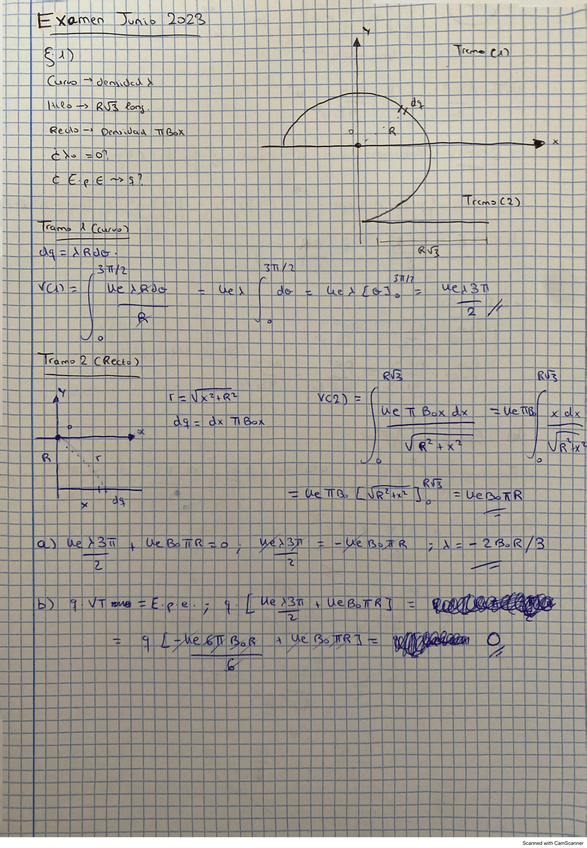 Examen Junio 2023
ξ 1)
Curvo → densidad λ
Hilo → R√3 long.
Recto → Densidad πB₀x
¿ λ₀ = 0?
¿ E.p.E ⇝ q?
y
Tramo (1)
dq
R
x
Tramo (2)
R√3
Tramo 1 (curvo)
dq = λRdσ.
V(1) = ∫₀^{3π/2} ke λRdσ / R = keλ ∫₀^{3π/2} dσ = keλ [σ]₀^{3π/2} = keλ3π / 2 //
Tramo 2 (Recto)
y
x
R
r
x
dq
r = √x²+R²
dq = dx πB₀x
V(2) = ∫₀^{R√3} ke π B₀x dx / √R²+x² = keπB₀ ∫₀^{R√3} x dx / √R²+x²
= keπB₀ [√R²+x²]₀^{R√3} = keB₀πR
a) keλ3π / 2 + keB₀πR = 0 ; keλ3π / 2 = -keB₀πR ; λ = -2B₀R/3
b) q. VT = E.p.e. ; q. [keλ3π / 2 + keB₀πR] =
= q [-ke6πB₀R / 6 + keB₀πR] = 0
Scanned with CamScanner